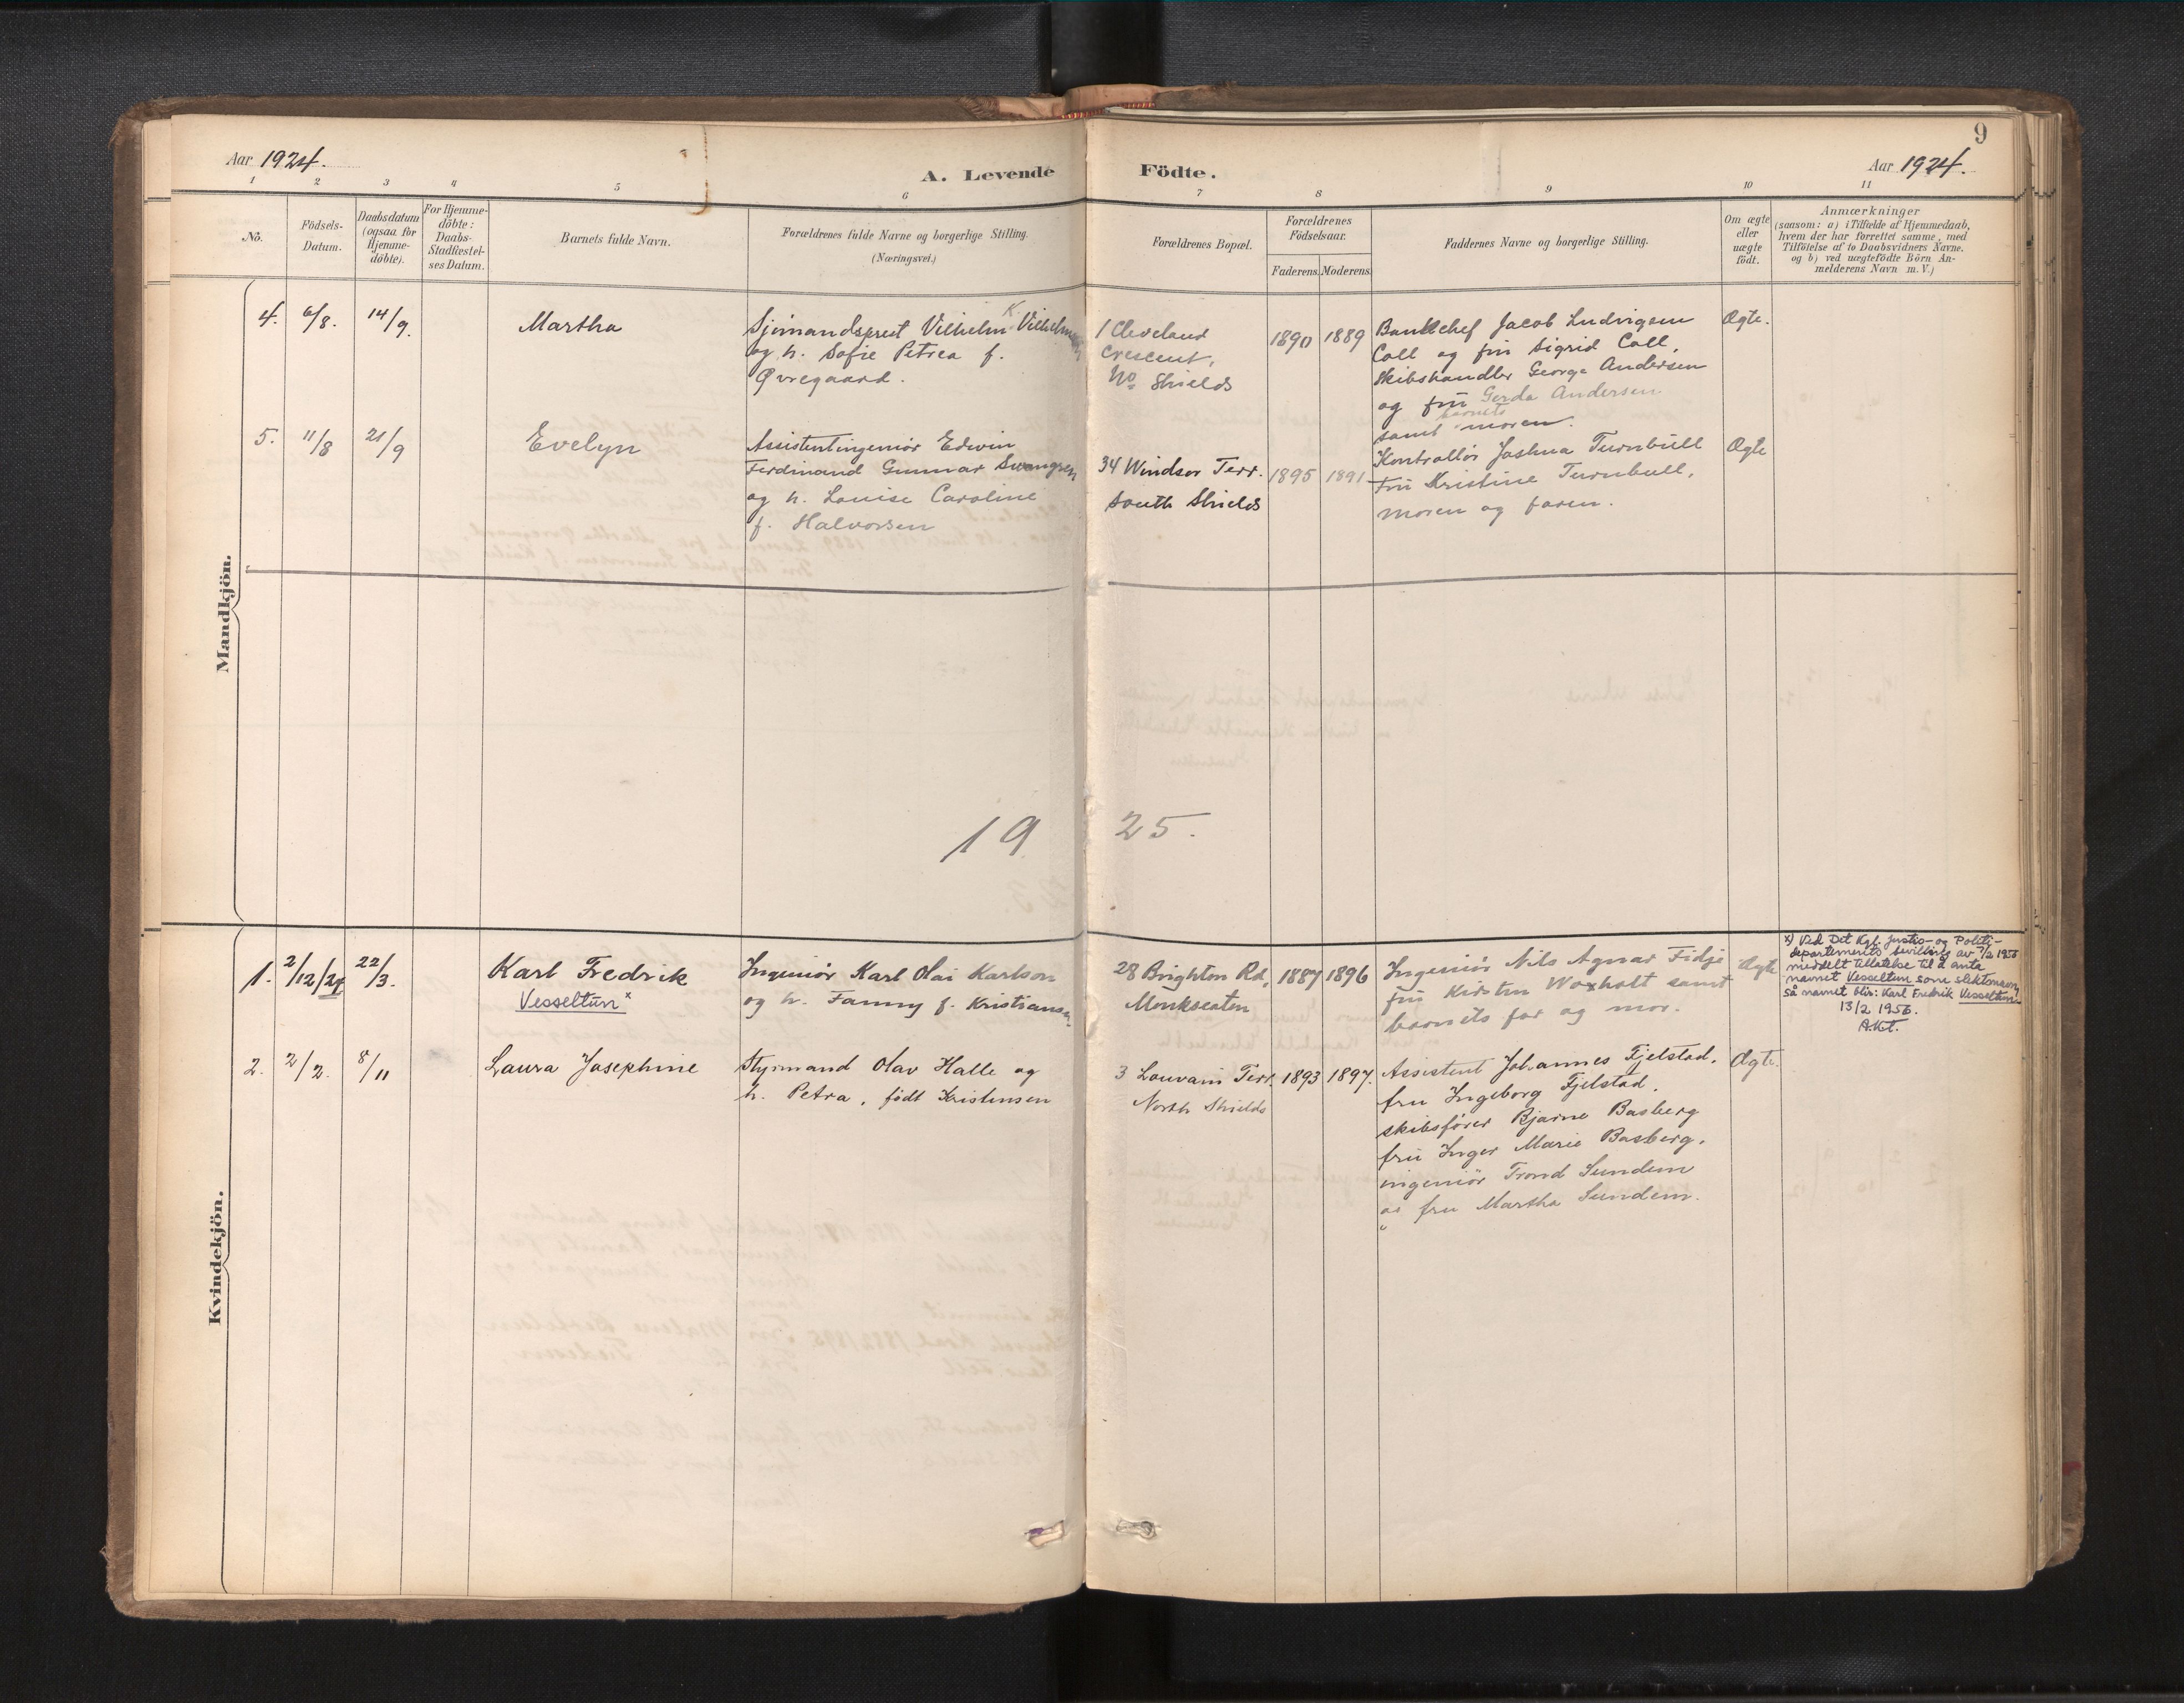 Aar 1924.
A. Levende Födte.
Aar 1924.
9
1 2 3 4 5 6 7 8 9 10 11
No.
Födsels-Datum.
Daabsdatum (ogsaa for Hjemme-döbte).
For Hjemme-döbte: Daabs-Stadfæstel-ses Datum.
Barnets fulde Navn.
Forældrenes fulde Navne og borgerlige Stilling.
(Næringsvei.)
Forældrenes Bopæl.
Forældrenes Födselsaar.
Faderens. Moderens.
Faddernes Navne og borgerlige Stilling.
Om ægte eller uægte födt.
Anmærkninger
(saasom: a) i Tilfælde af Hjemmedaab,
hvem der har forrettet samme, med
Tilföielse af to Daabsvidners Navne.
og b) ved uægtefödte Börn An-
melderens Navn m. V.)
Mandkjön.
4. 6/8. 14/9. Martha
Sjömandsprest Vilhelm K. Vilhelmsen
og h. Sofie Petrea f.
Øvregaard.
1 Cleveland
Crescent,
No Shields
1890 1889
Bankchef Jacob Ludvigsen
Coll og fru Sigrid Coll,
Skibshandler George Andersen
og fru Gerda Andersen
samt barnets moren.
Ægte.
5. 11/8 21/9 Evelyn
Assistentingeniør Edwin
Ferdinand Gunnar Swangren
og h. Louise Caroline
f. Halvorsen
34 Windsor Terr.
South Shields
1895 1891
Kontrollør Joshua Turnbull
Fru Kristine Turnbull,
moren og faren.
Ægte
19 25.
Kvindekjön.
1. 2/12/21 22/3. Karl Fredrik
Vesseltun x
Ingeniör Karl Olai Karlson
og h. Fanny f. Kristiansen.
28 Brighton Rd,
Monkseaton
1887 1896
Ingeniör Nils Agnar Fidje
fru Kirsten Woxholt samt
barnets far og mor.
Ægte
x) Ved Det Kgl. Justis- og Politi-
departements bevilling av 7/2 1956
meddelt tillatelse til å anta
navnet Vesseltun som slektsnavn,
så navnet blir: Karl Fredrik Vesseltun.
13/2 1956.
2. 2/2. 8/11 Laura Josephine
Styrmand Olav Halle og
h. Petra, født Kristensen
3 Louvain Terr.
North Shields
1893 1897.
Assistent Johannes Fjelstad,
fru Ingeborg Fjelstad,
skibsfører Bjarne Basberg
fru Inger Marie Basberg,
ingeniör Trond Sundem
og fru Martha Sundem.
Ægte.